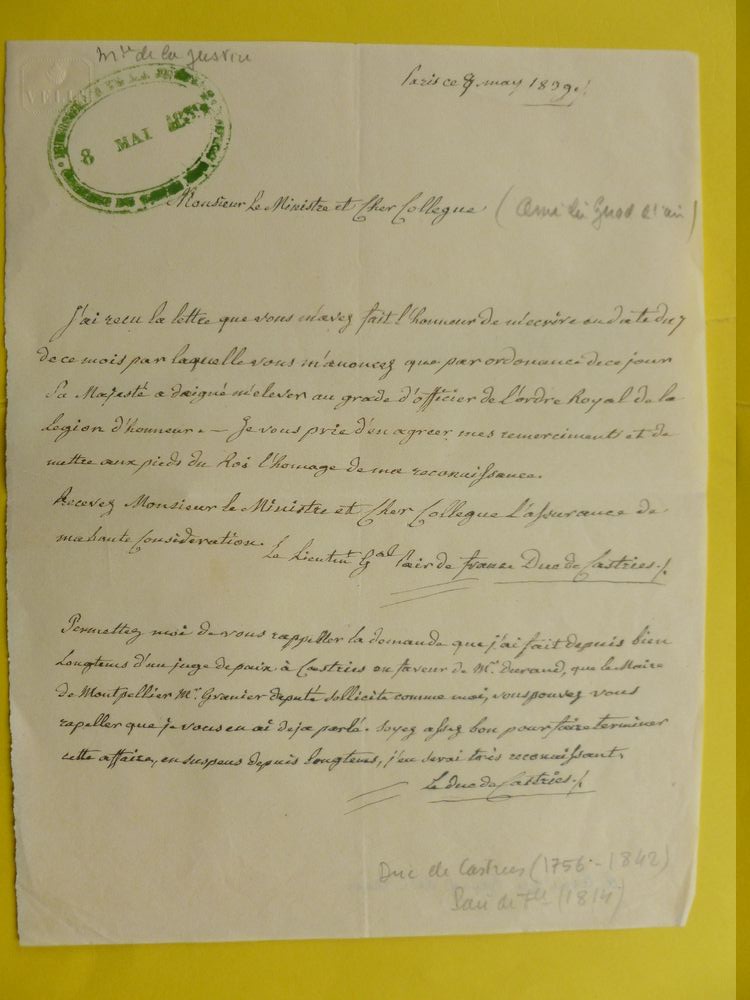 Mtre de la Justice
VELLY
8 MAI
Paris ce 8 may 1839./.
Monsieur Le Ministre et Cher Collegue
J'ai reçu la lettre que vous m'avez fait l'honneur de m'ecrire en date du 7
de ce mois par laquelle vous m'anoncez que par ordonance de ce jour
Sa Majesté a daigné m'elever au grade d'officier de L'ordre Royal de la
Legion d'honneur. — Je vous prie d'en agreer mes remerciments et de
mettre aux pieds du Roi l'homage de ma reconnaissance.
Recevez Monsieur le Ministre et Cher Collegue L'assurance de
ma haute Consideration.
Le Lieutnt Gal Pair de france Duc de Castries./.
Permettez moi de vous rappeller la demande que j'ai fait depuis bien
Longtems d'un juge de paix à Castries en faveur de Mr. durand, que le Maire
de Montpellier Mr Granier deputé sollicite comme moi, vous pouvez vous
rapeller que je vous en ai deja parlé. soyez assez bon pour faire terminer
cette affaire, en suspens depuis longtems, j'en serai très reconnaissant.
Le duc de Castries./.
Duc de Castries (1756-1842)
Pair de Fce (1814)